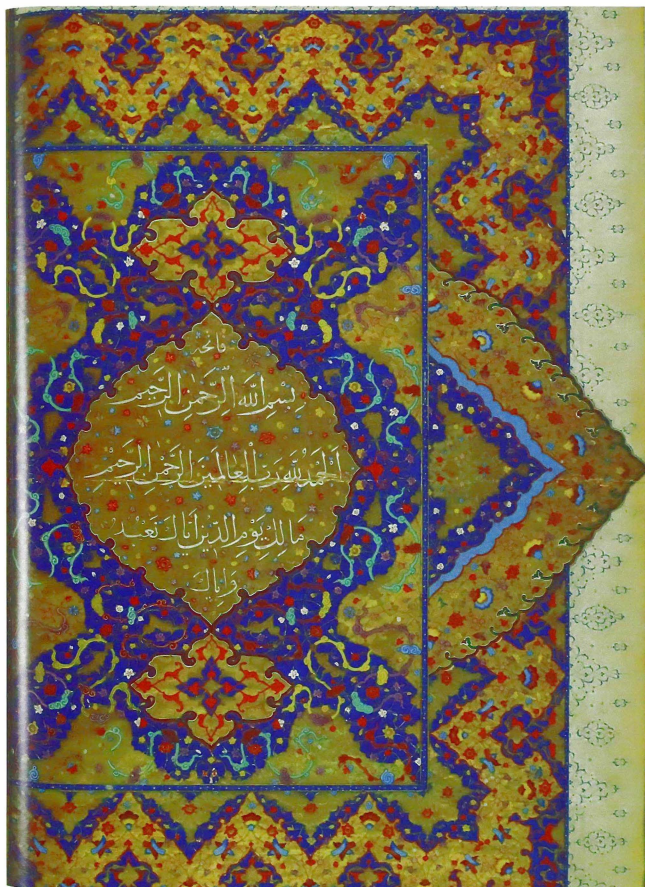 فاتحة
بِسْمِ اللَّهِ الرَّحْمَٰنِ الرَّحِيمِ
اَلْحَمْدُ لِلَّهِ رَبِّ الْعَالَمِينَ الرَّحْمَٰنِ الرَّحِيمِ
مَالِكِ يَوْمِ الدِّينِ اِيَّاكَ نَعْبُدُ
وَاِيَّاكَ